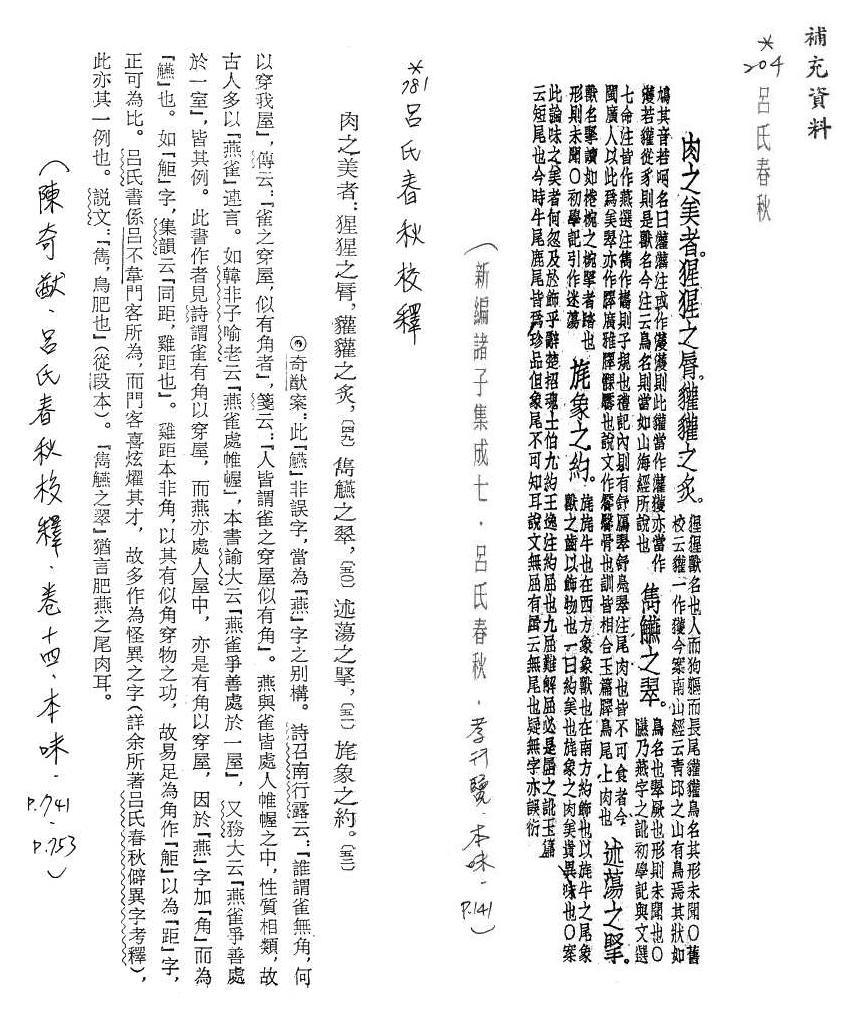 補充資料
*204 呂氏春秋
肉之美者。猩猩之脣。貛貛之炙。猩猩獸名也人面狗軀而長尾貛貛鳥名其形未聞○舊
校云貛一作獲今案南山經云青邱之山有鳥焉其狀如
鳩其音若呵名曰灌灌注或作濩濩則此貛當作灌獲亦當作
濩若貛從豸則是獸名今注云鳥名則當如山海經所說也
雋觾之翠。鳥名也翠厥也形則未聞也○
觾乃燕字之訛初學記與文選
七命注皆作燕選注雋作巂則子規也禮記內則有舒鴈翠舒鳧翠注尾肉也皆不可食者今
閩廣人以此爲美翠亦作臎廣雅臎髁臀也說文作臀骨也訓皆相合玉篇臎鳥尾上肉也
述蕩之掔。
獸名掔讀如棬椀之椀掔者踏也
形則未聞○初學記引作迷蕩
旄象之約。旄旄牛也在西方象象獸也在南方約飾也以旄牛之尾象
獸之齒以飾物也一曰約美也旄象之肉美貴異味也○案
此論味之美者何忽及於飾乎辭楚招魂土伯九約王逸注約屈也九屈難解屈必是之訛玉篇
云短尾也今時牛尾鹿尾皆爲珍品但象尾不可知耳說文無屈有云無尾也疑無字亦誤衍
(新編諸子集成七.呂氏春秋.孝行覽.本味.P.141)
*781 呂氏春秋校釋
肉之美者:猩猩之脣,貛貛之炙,〔四九〕雋觾之翠,〔五〇〕述蕩之掔,〔五一〕旄象之約。〔五二〕
奇猷案:此「觾」非誤字,當為「燕」字之別構。詩召南行露云:「誰謂雀無角,何
以穿我屋」,傳云:「雀之穿屋,似有角者」,箋云:「人皆謂雀之穿屋似有角」。燕與雀皆處人帷幄之中,性質相類,故
古人多以「燕雀」連言。如韓非子喻老云「燕雀處帷幄」,本書諭大云「燕雀爭善處於一屋」,又務大云「燕雀爭善處
於一室」,皆其例。此書作者見詩謂雀有角以穿屋,而燕亦處人屋中,亦是有角以穿屋,因於「燕」字加「角」而為
「觾」也。如「䶥」字,集韻云「同距,雞距也」。雞距本非角,以其有似角穿物之功,故易足為角作「䶥」以為「距」字,
正可為比。呂氏書係呂不韋門客所為,而門客喜炫燿其才,故多作為怪異之字(詳余所著呂氏春秋僻異字考釋),
此亦其一例也。說文:「雋,鳥肥也」(從段本)。「雋觾之翠」猶言肥燕之尾肉耳。
(陳奇猷.呂氏春秋校釋.卷十四.本味.P.741-P.753)